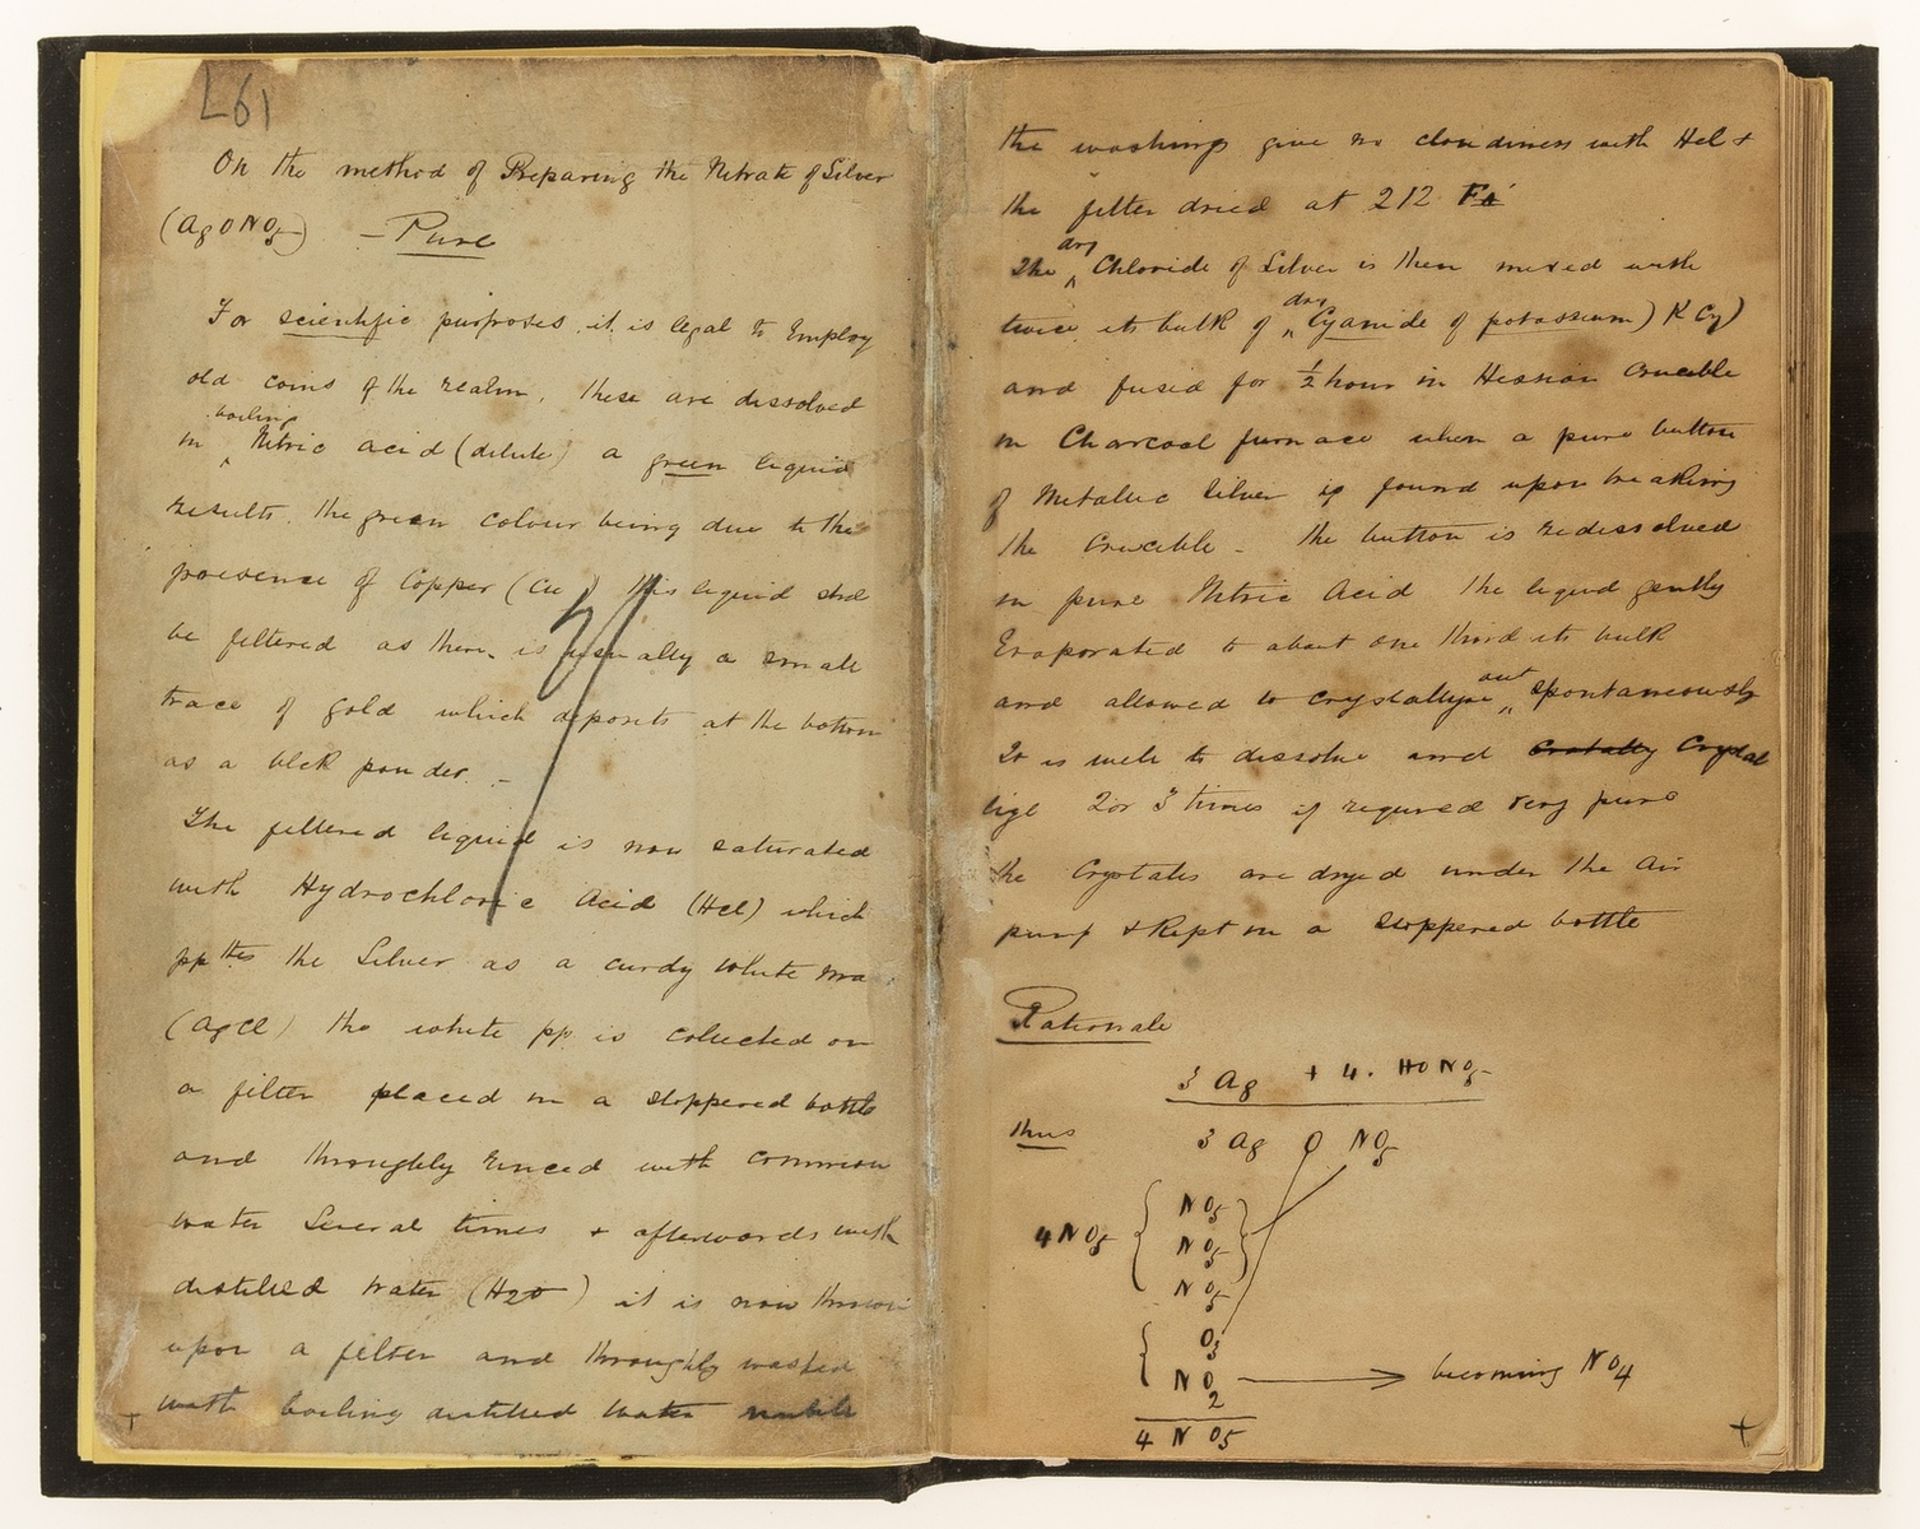 L61
On the method of Preparing the Nitrate of Silver
(AgONO5) – Pure
For scientific purposes it is legal to Employ
old coins of the realm, these are dissolved
boiling
in ^ Nitric acid (dilute) a green liquid
results. the green colour being due to the
presence of Copper (Cu) this liquid shd
be filtered as there is usually a small
trace of gold which deposits at the bottom
as a blck powder. –
The filtered liquid is now saturated
with Hydrochloric Acid (Hcl) which
pptes the Silver as a curdy white
(AgCl) the white pp. is collected on
a filter placed in a stoppered bottle
and throughly rinced with common
water Several times + afterwards with
distilled water (H2O) it is now thrown
upon a filter and throughly washed
with boiling distilled water until
+
the washings give no cloudiness with Hcl +
the filter dried at 212
dry
The ^ Chloride of Silver is then mixed with
dry
twice its bulk of " Cyanide of potassium) K Cy)
and fused for 1/2 hour in Hessian Crucible
in Charcoal furnace when a pure button
of Metallic Silver is found upon breaking
the Crucible – the button is redissolved
in pure Nitric Acid the liquid gently
Evaporated to about one third its bulk
out
and allowed to crystallyse " Spontaneously
It is well to dissolve and Crystal
lize 2 or 3 times if required very pure
the Crystals are dryed under the air
pump + Kept in a Stoppered bottle
Rationale
3 Ag + 4. HONO5
thus 3 Ag O NO5
NO5
4NO5 NO5
NO5
O3
NO2 becoming NO4
4 N O5
+